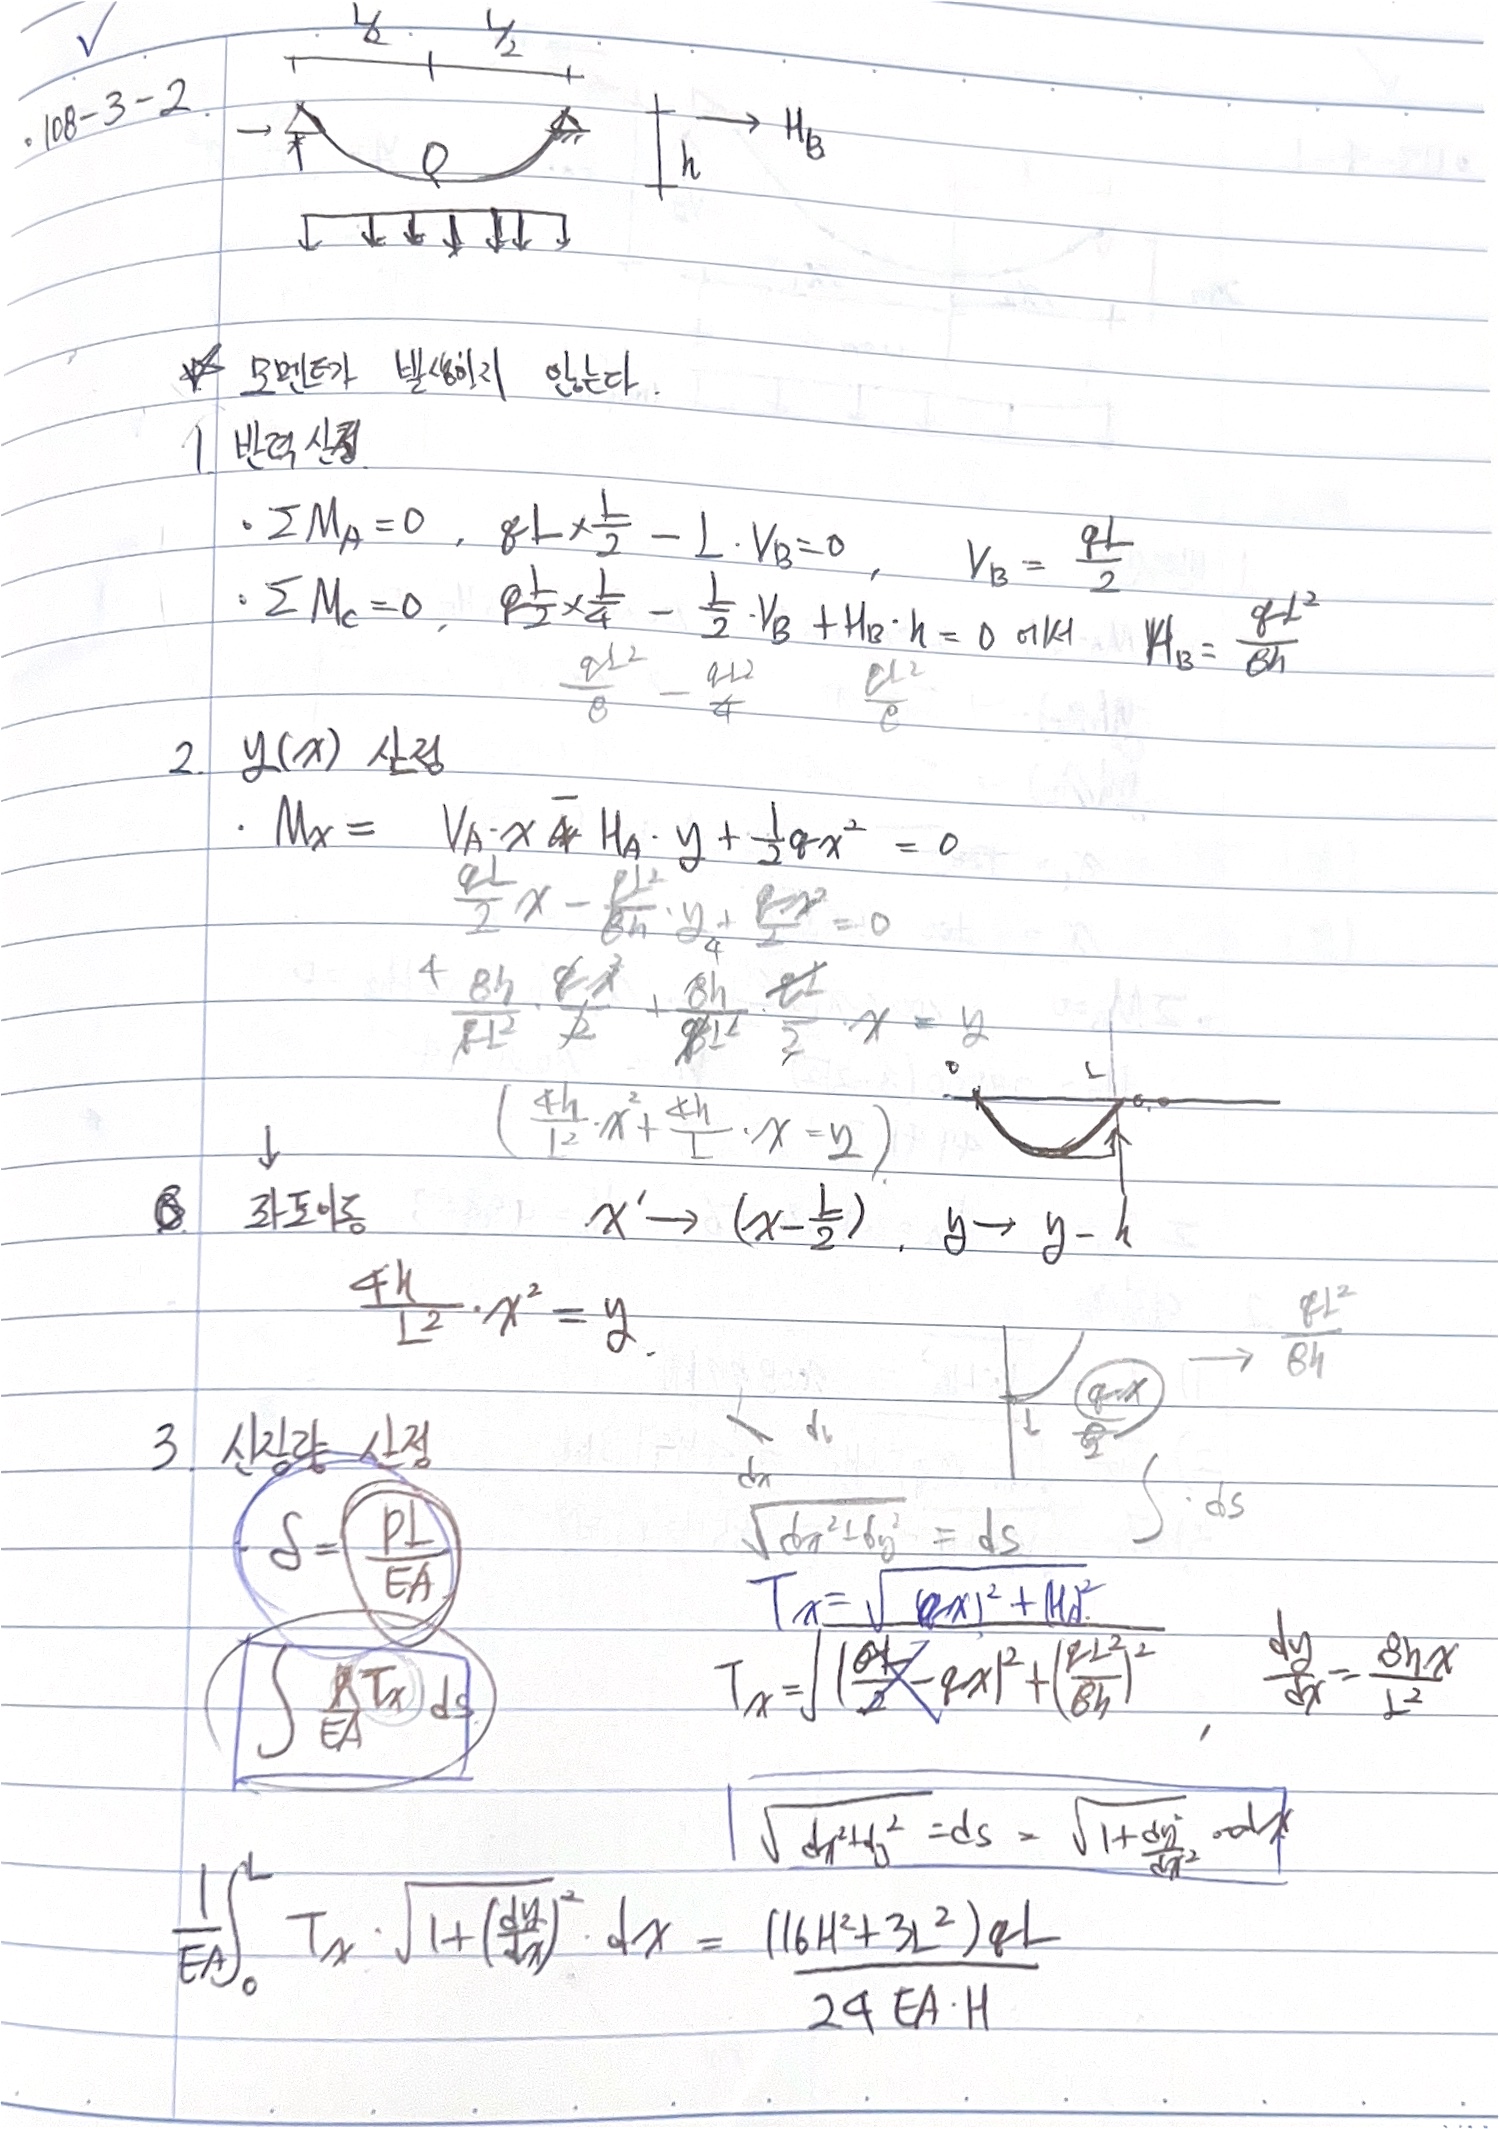 ✓
L/2 L/2
108-3-2
→ H_B
h
☆ 모멘트가 발생하지 않는다.
1. 반력산정
· ΣM_A=0, qL×L/2 - L·V_B=0, V_B = qL/2
· ΣM_C=0, qL/2×L/4 - L/2·V_B + H_B·h = 0 에서 H_B = qL²/8h
qL²/8 - qL²/4 qL²/8
2. y(x) 산정
· M_x = V_A·x - H_A·y + 1/2qx² = 0
qL/2 x - qL²/8h·y + qx²/2 = 0
8h/qL²·qx²/2 + 8h/qL²·qL/2·x = y
(4h/L²·x² + 4h/L·x = y)
0 L
↓
좌표이동 x'→(x-L/2), y→y-h
4h/L²·x² = y.
→ qL²/8h
3. 신장량 산정
dx
δ = PL/EA
√dx²+dy² = ds ∫·ds
T_x = √(qx)²+(H_A)²
∫ T_x/EA ds
T_x = √(qL/2 - qx)²+(qL²/8h)², dy/dx = 8hx/L²
√dx²+dy² = ds = √1+dy²/dx²·dx
1/EA ∫₀ᴸ T_x·√1+(dy/dx)²·dx = (16H²+3L²)qL/24EA·H